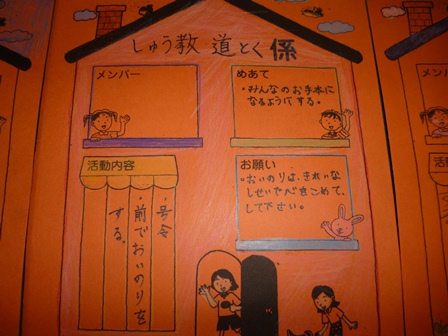 しゅう教 道とく係
メンバー
めあて
・みんなのお手本に
なるようにする。
活動内容
・号令
・前でおいのりを
する。
お願い
。おいのりは、きれいな
しせいで心をこめて、
して下さい。